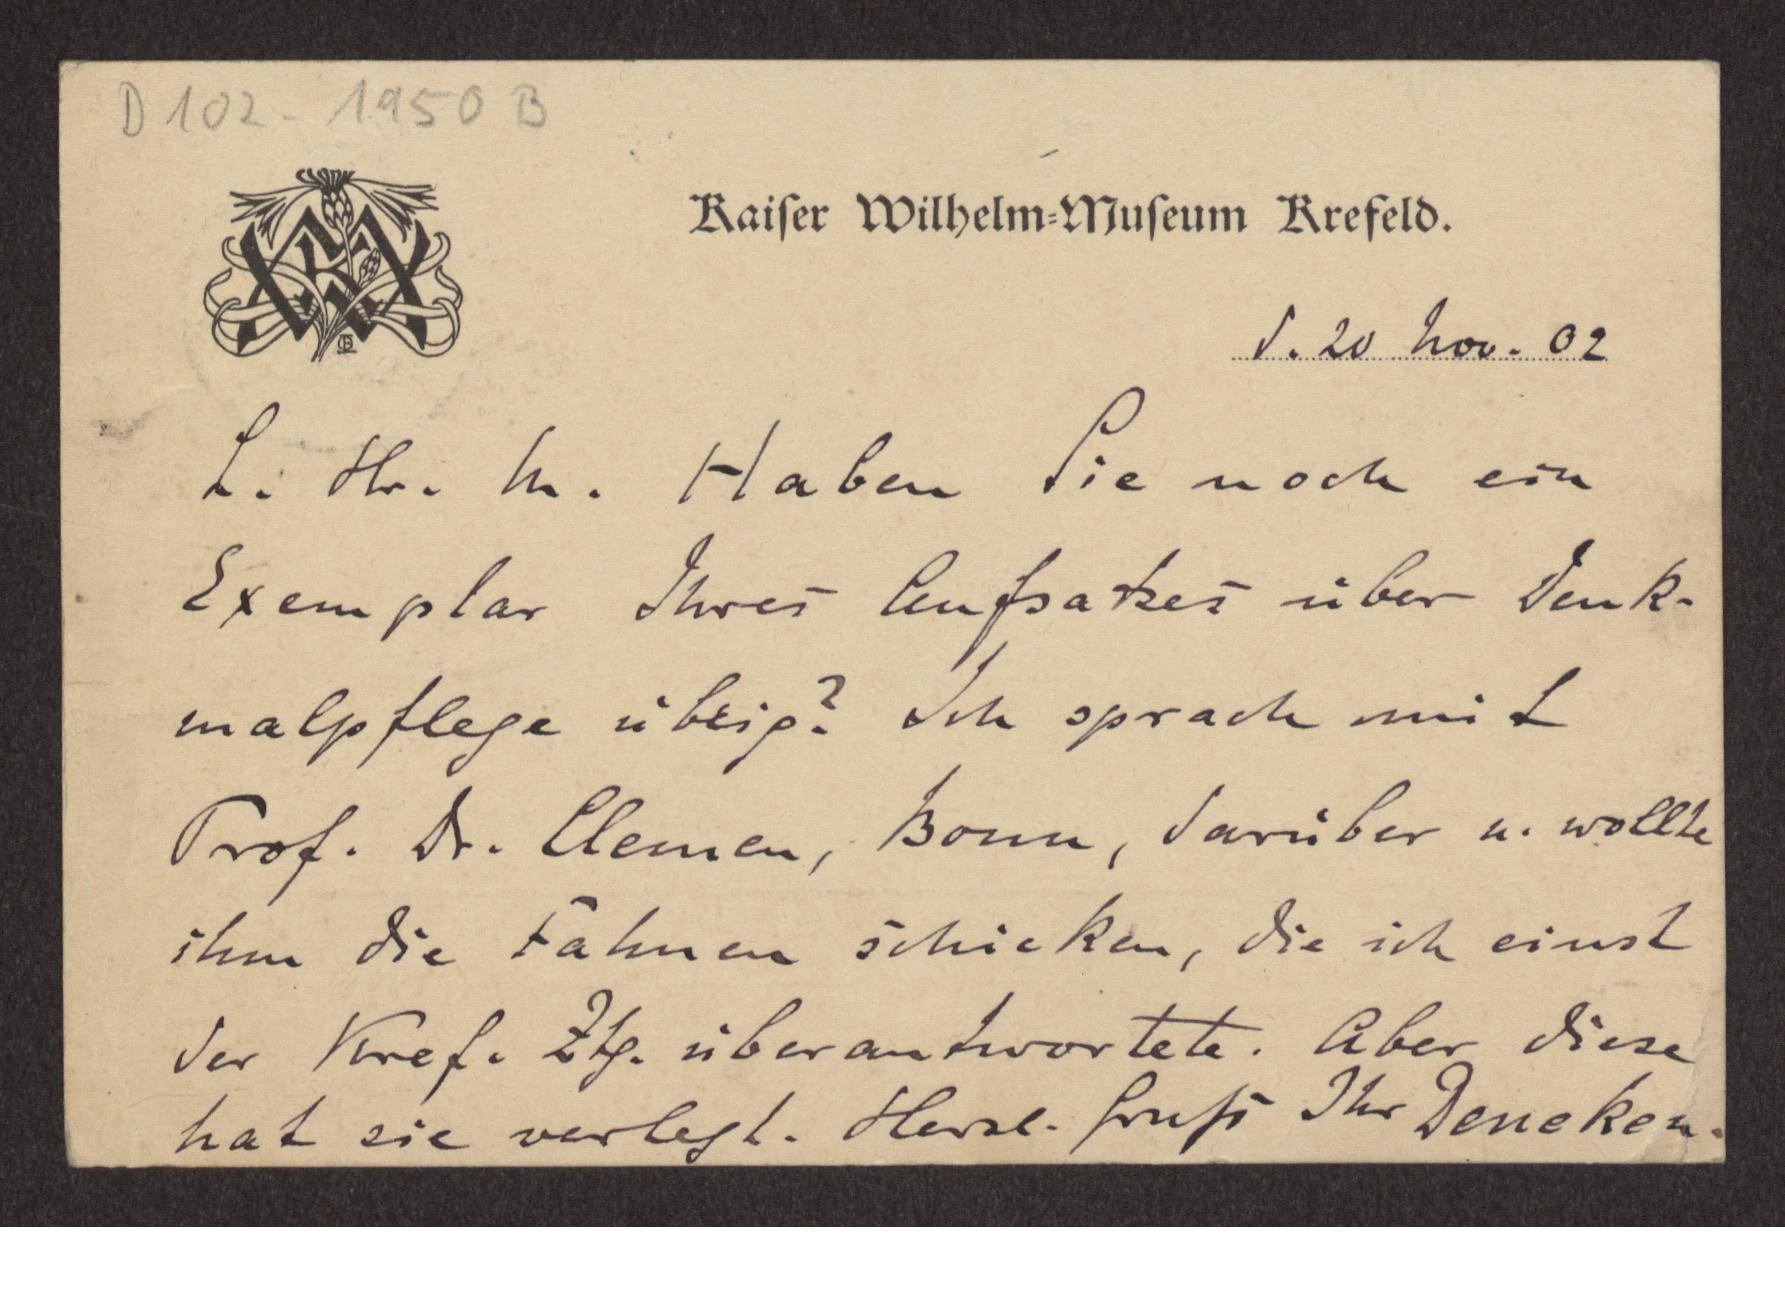 D 102 - 1950 B
Kaiſer Wilhelm=Muſeum Krefeld.
d. 20 Nov. 02
L. Hr. M. Haben Sie noch ein
Exemplar Ihres Aufsatzes über Denk-
malpflege übrig? Ich sprach mit
Prof. Dr. Clemen, Bonn, darüber u. wollte
ihm die Fahnen schicken, die ich einst
der Kref. Ztg. überantwortete. Aber diese
hat sie verlegt. Herzl. Gruß Ihr Deneken.